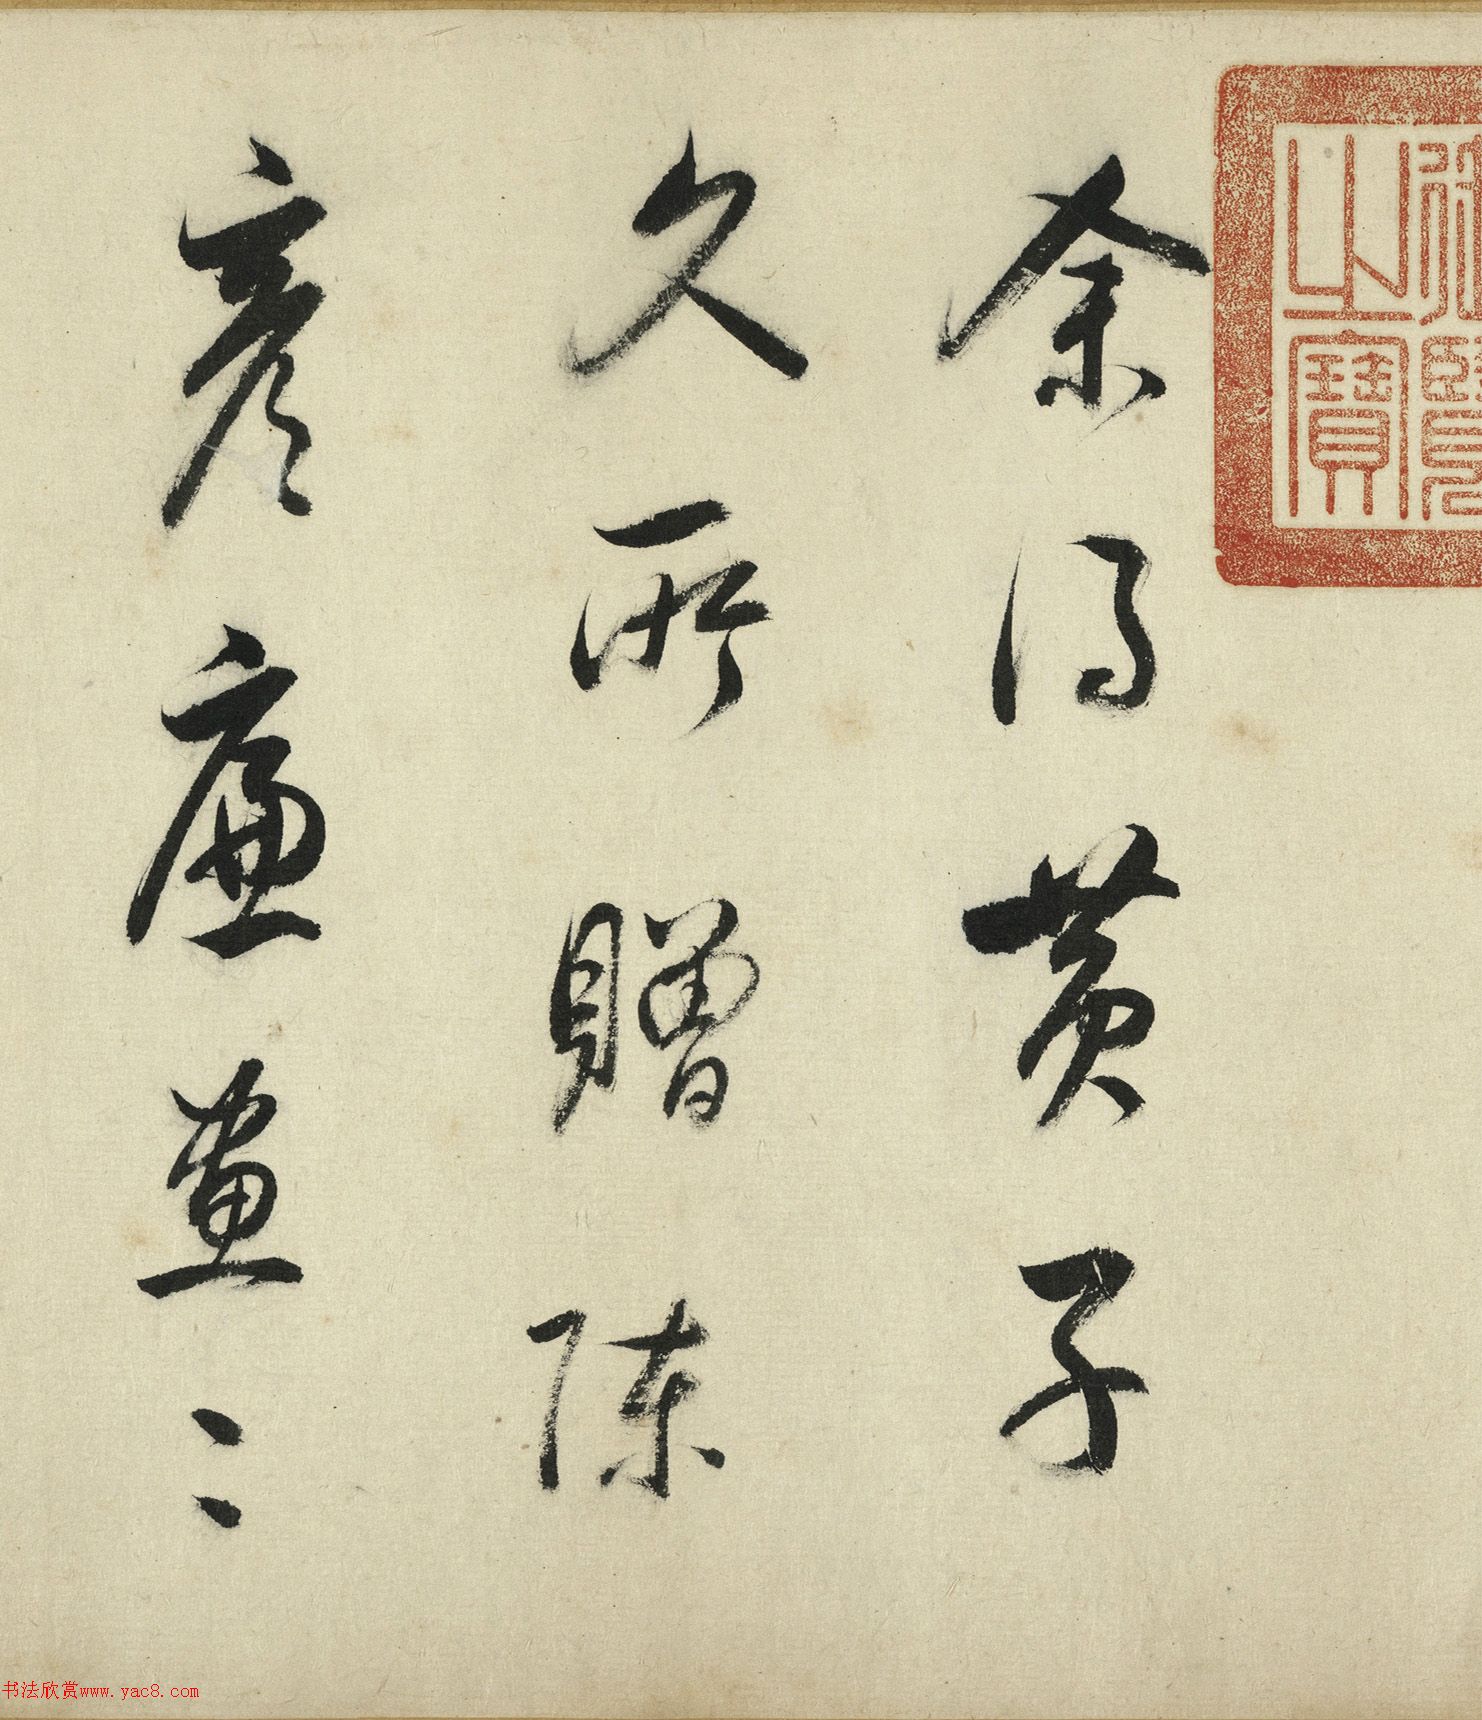 余得黃子
久所贈陳
彥廉畫二
御覽
之寶
书法欣赏www.yac8.com